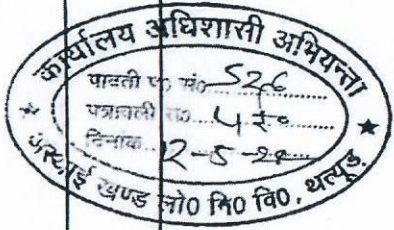 कार्यालय अधिशासी अभियन्ता
पावती प० सं० 526
पत्रावली सं०
दिनांक 12-5-22
अस्थाई खण्ड लो० नि० वि०, थत्यूड़